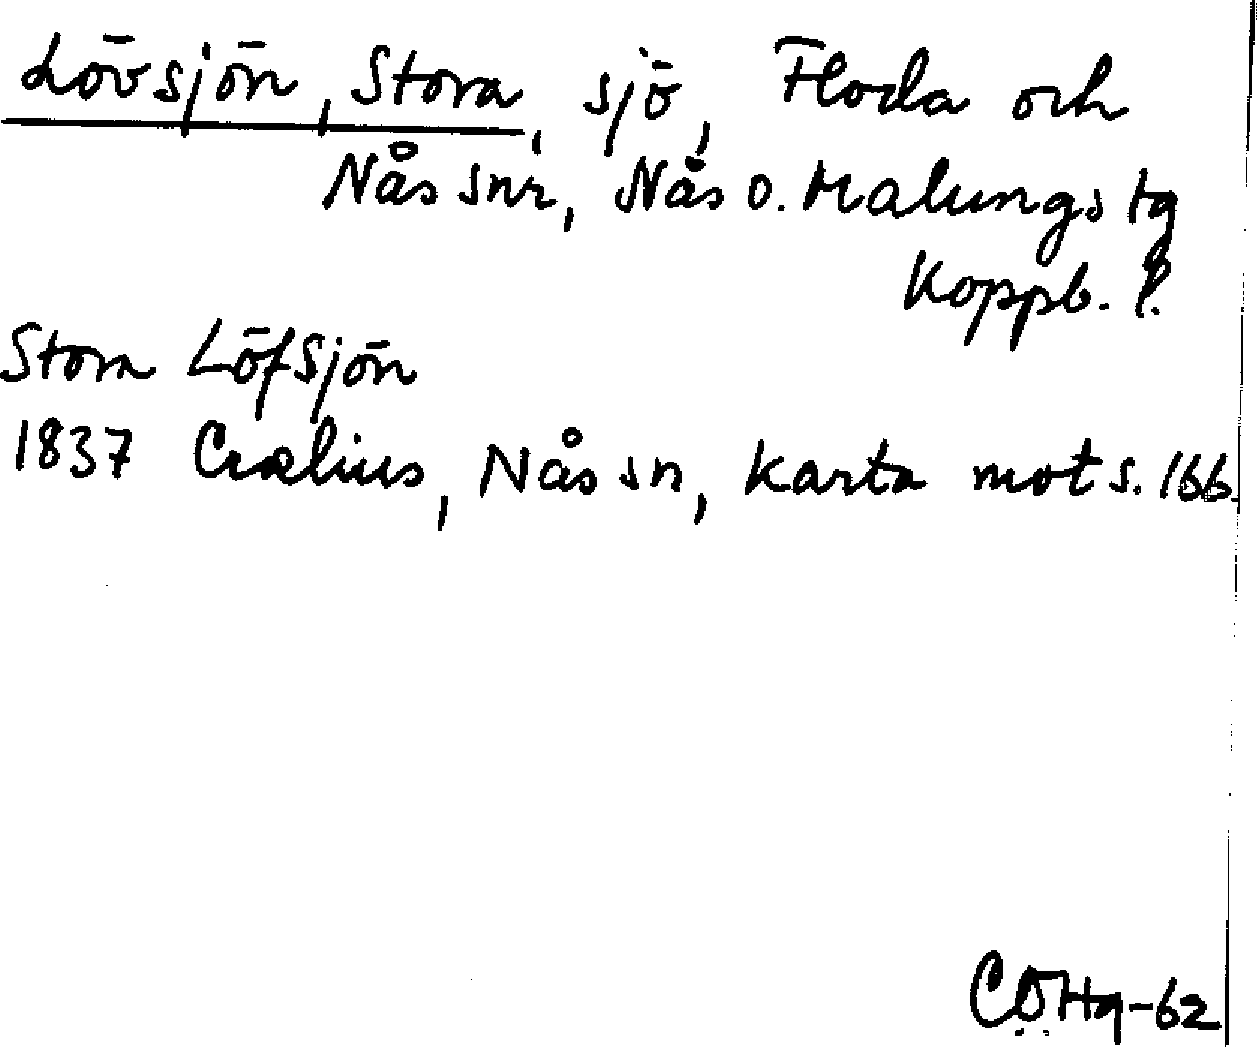 Lövsjön, Stora, sjö, Floda och
Nås snr, Nås o. Malungs tg
Koppb. l.
Stora Löfsjön
1837 Crælius, Nås sn, Karta mot s. 166.
CÖHg-62